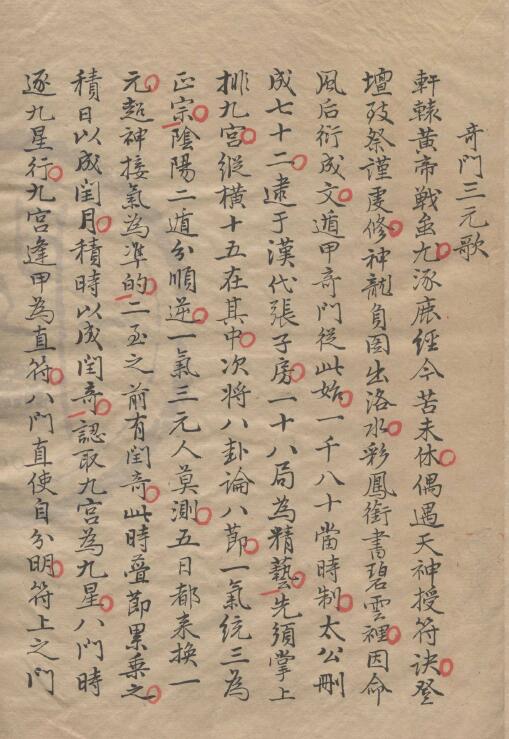 奇門三元歌
軒轅黃帝戰蚩尤涿鹿經今苦未休偶遇天神授符訣登
壇致祭謹虔修神龍負图出洛水彩鳳銜書碧雲裡因命
風后衍成文遁甲奇門從此始一千八十當時制太公刪
成七十二逮于漢代張子房一十八局為精藝先須掌上
排九宮縱橫十五在其中次將八卦論八節一氣統三為
正宗陰陽二遁分順逆一氣三元人莫測五日都來換一
元超神接氣為準的二至之前有閏奇此時疊節累乘之
積日以成閏月積時以成閏奇認取九宮為九星八門時
逐九星行九宮逢甲為直符八門直使自分明符上之門